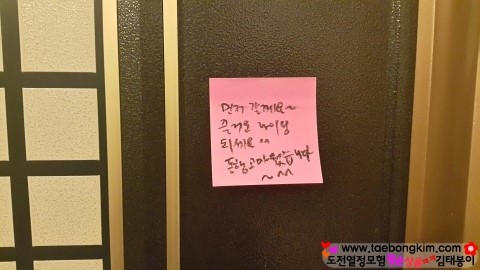 먼저 갈께요~
즐거운 라이딩
되세요^^
동행 고마웠습니다
~^^
www.taebongkim.com
도전열정모험 싱글 김태봉이